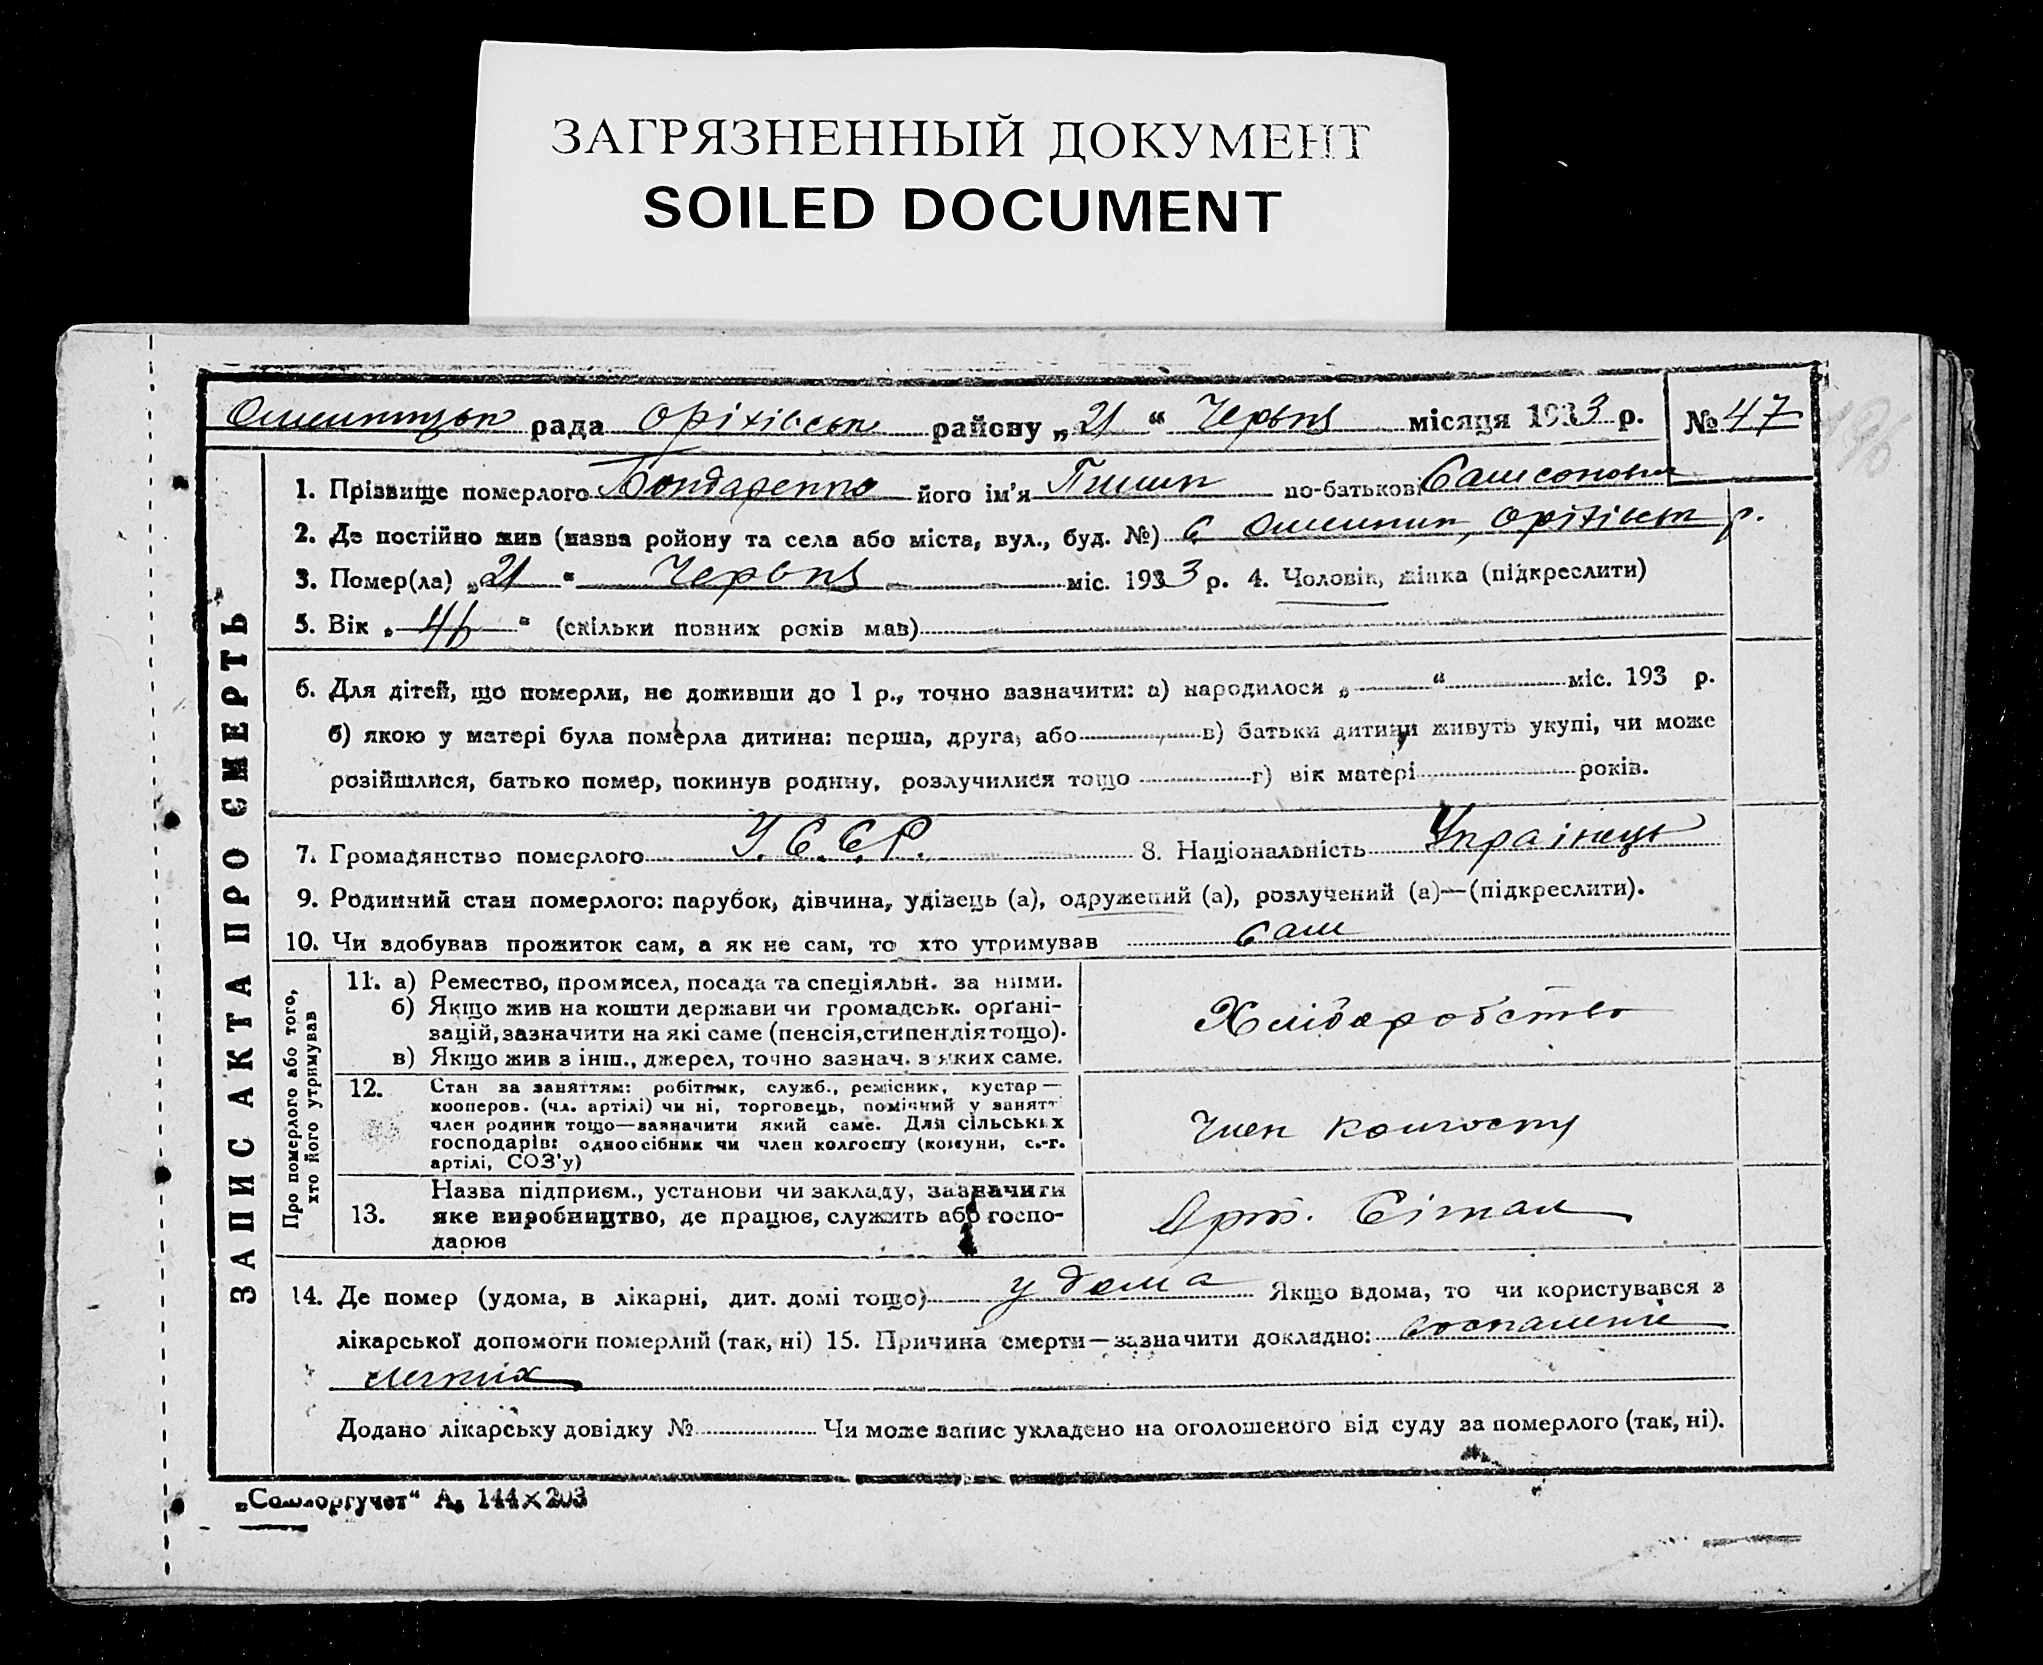 ЗАГРЯЗНЕННЫЙ ДОКУМЕНТ
SOILED DOCUMENT
рада Оріхівськ району „21“ Червня місяця 1933 р. № 47
1. Прізвище померлого Бондаренко його ім'я по-батькові Самсонович
2. Де постійно жив (назва ройону та села або міста, вул., буд. №) с Оріхівськ р.
3. Помер(ла) „21“ Червня міс. 1933 р. 4. Чоловік, жінка (підкреслити)
5. Вік „46“ (скільки повних років мав)
6. Для дітей, що померли, не доживши до 1 р., точно зазначити: а) народилося „ “ міс. 193 р.
б) якою у матері була померла дитина: перша, друга, або в) батьки дитини живуть укупі, чи може
розійшлися, батько помер, покинув родину, розлучилися тощо г) вік матері років.
7. Громадянство померлого У.С.С.Р. 8. Національність Українець
9. Родинний стан померлого: парубок, дівчина, удівець (а), одружений (а), розлучений (а)—(підкреслити).
10. Чи здобував прожиток сам, а як не сам, то хто утримував сам
ЗАПИС АКТА ПРО СМЕРТЬ
Про померлого або того,
хто його утримував
11. а) Ремество, промисел, посада та спеціяльн. за ними.
б) Якщо жив на кошти держави чи громадськ. органі-
зацій, зазначити на які саме (пенсія, стипендія тощо).
в) Якщо жив з інш., джерел, точно зазнач. з яких саме.
Хлібаробство
12. Стан за заняттям: робітник, служб., ремісник, кустар —
кооперов. (чл. артілі) чи ні, торговець, помічний у занятт
член родини тощо—зазначити який саме. Для сільських
господарів: одноосібник чи член колгоспу (комуни, с.-г.
артілі, СОЗ'у)
Член колгоспу
Назва підприєм., установи чи закладу, зазначити
13. яке виробництво, де працює, служить або госпо-
дарює
Арт.
14. Де помер (удома, в лікарні, дит. домі тощо) у дома Якщо вдома, то чи користувався з
лікарської допомоги померлий (так, ні) 15. Причина смерти—зазначити докладно: воспаленіє
легких
Додано лікарську довідку № Чи може запис укладено на оголошеного від суду за померлого (так, ні).
„Союзоргучет“ А₅ 144×203